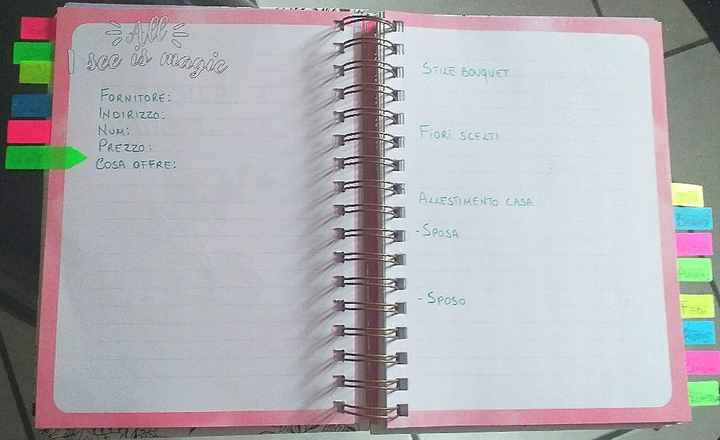 All
I see is magic
FORNITORE:
INDIRIZZO:
NUM:
PREZZO:
COSA OFFRE:
STILE BOUQUET
FIORI SCELTI
ALLESTIMENTO CASA
-SPOSA
-SPOSO